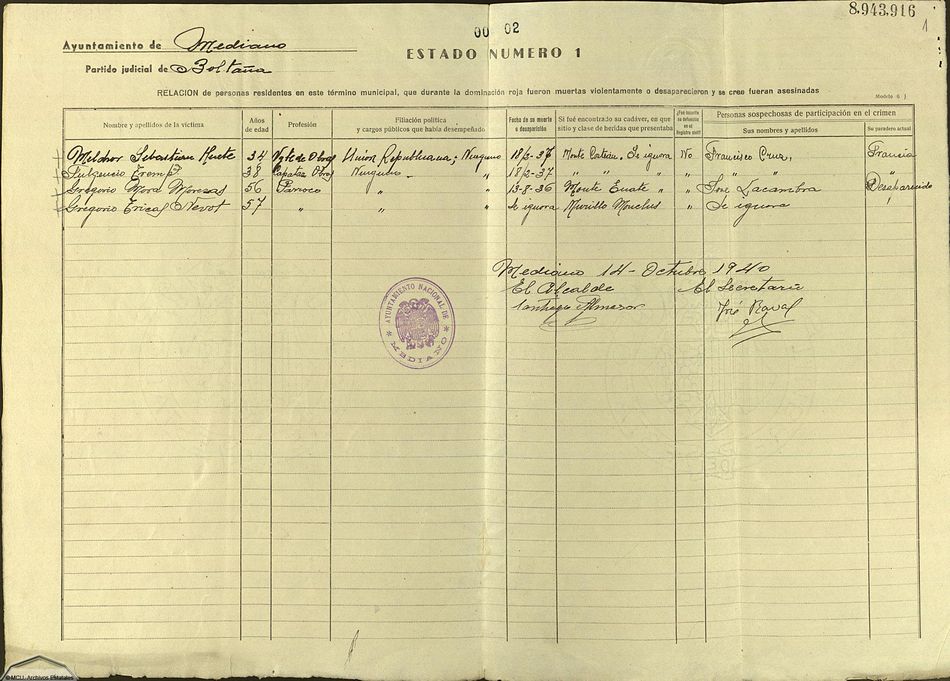 8.943.916
1
00 02
Ayuntamiento de Mediano
ESTADO NUMERO 1
Partido judicial de Boltaña
RELACION de personas residentes en este término municipal, que durante la dominación roja fueron muertas violentamente o desaparecieron y se cree fueran asesinadas
Modelo
Nombre y apellidos de la víctima
Años de edad
Profesión
Filiación política y cargos públicos que había desempeñado
Fecha de su muerte o desaparición
Si fué encontrado su cadáver, en qué sitio y clase de heridas que presentaba
¿Fué inscrita su defunción en el Registro civil?
Personas sospechosas de participación en el crimen
Sus nombres y apellidos
Su paradero actual
Melchor Sebastian Huete 34 Vgte de Obras Union Republicana; Ninguno 18/2-37 Monte Se ignora No Francisco Cruz, Francia
38 Capataz Obras Ninguno - " 18/2-37 " " " " " "
Gregorio Mora 56 Parroco " " 13-8-36 Monte " " Jose Lacambra Desaparecido
Gregorio Nevot 57 " " " Se ignora Murillo " Se ignora
Mediano 14 - Octubre 1940
El Alcalde El Secretario
Santiago José
AYUNTAMIENTO NACIONAL DE MEDIANO
©MCU-Archivos Estatales